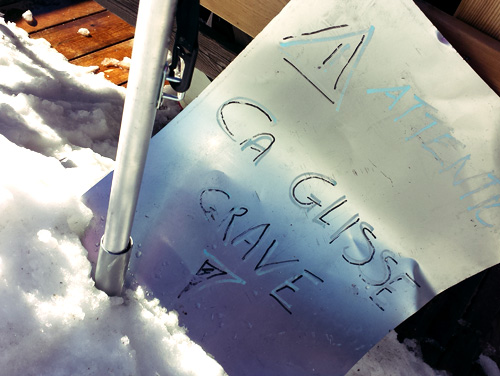 ATTENTIO
CA GLISSE
GRAVE